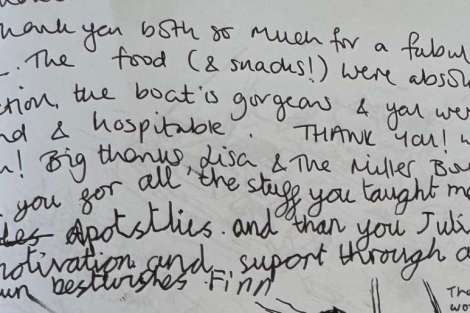 thank you both so much for a fabul
. The food (& snacks!) were absolu
ction, the boat is gorgeous & you wer
nd & hospitable. THANK YOU! w
n! Big thanks, Lisa & The Miller Bo
you for all the stuff you taught m
Apotstlies. and than you Juli
motivation and suport through a
un bestwishes Finn
Tha
wo